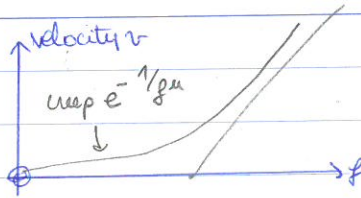 velocity v
creep e^{-1/f^μ}
f